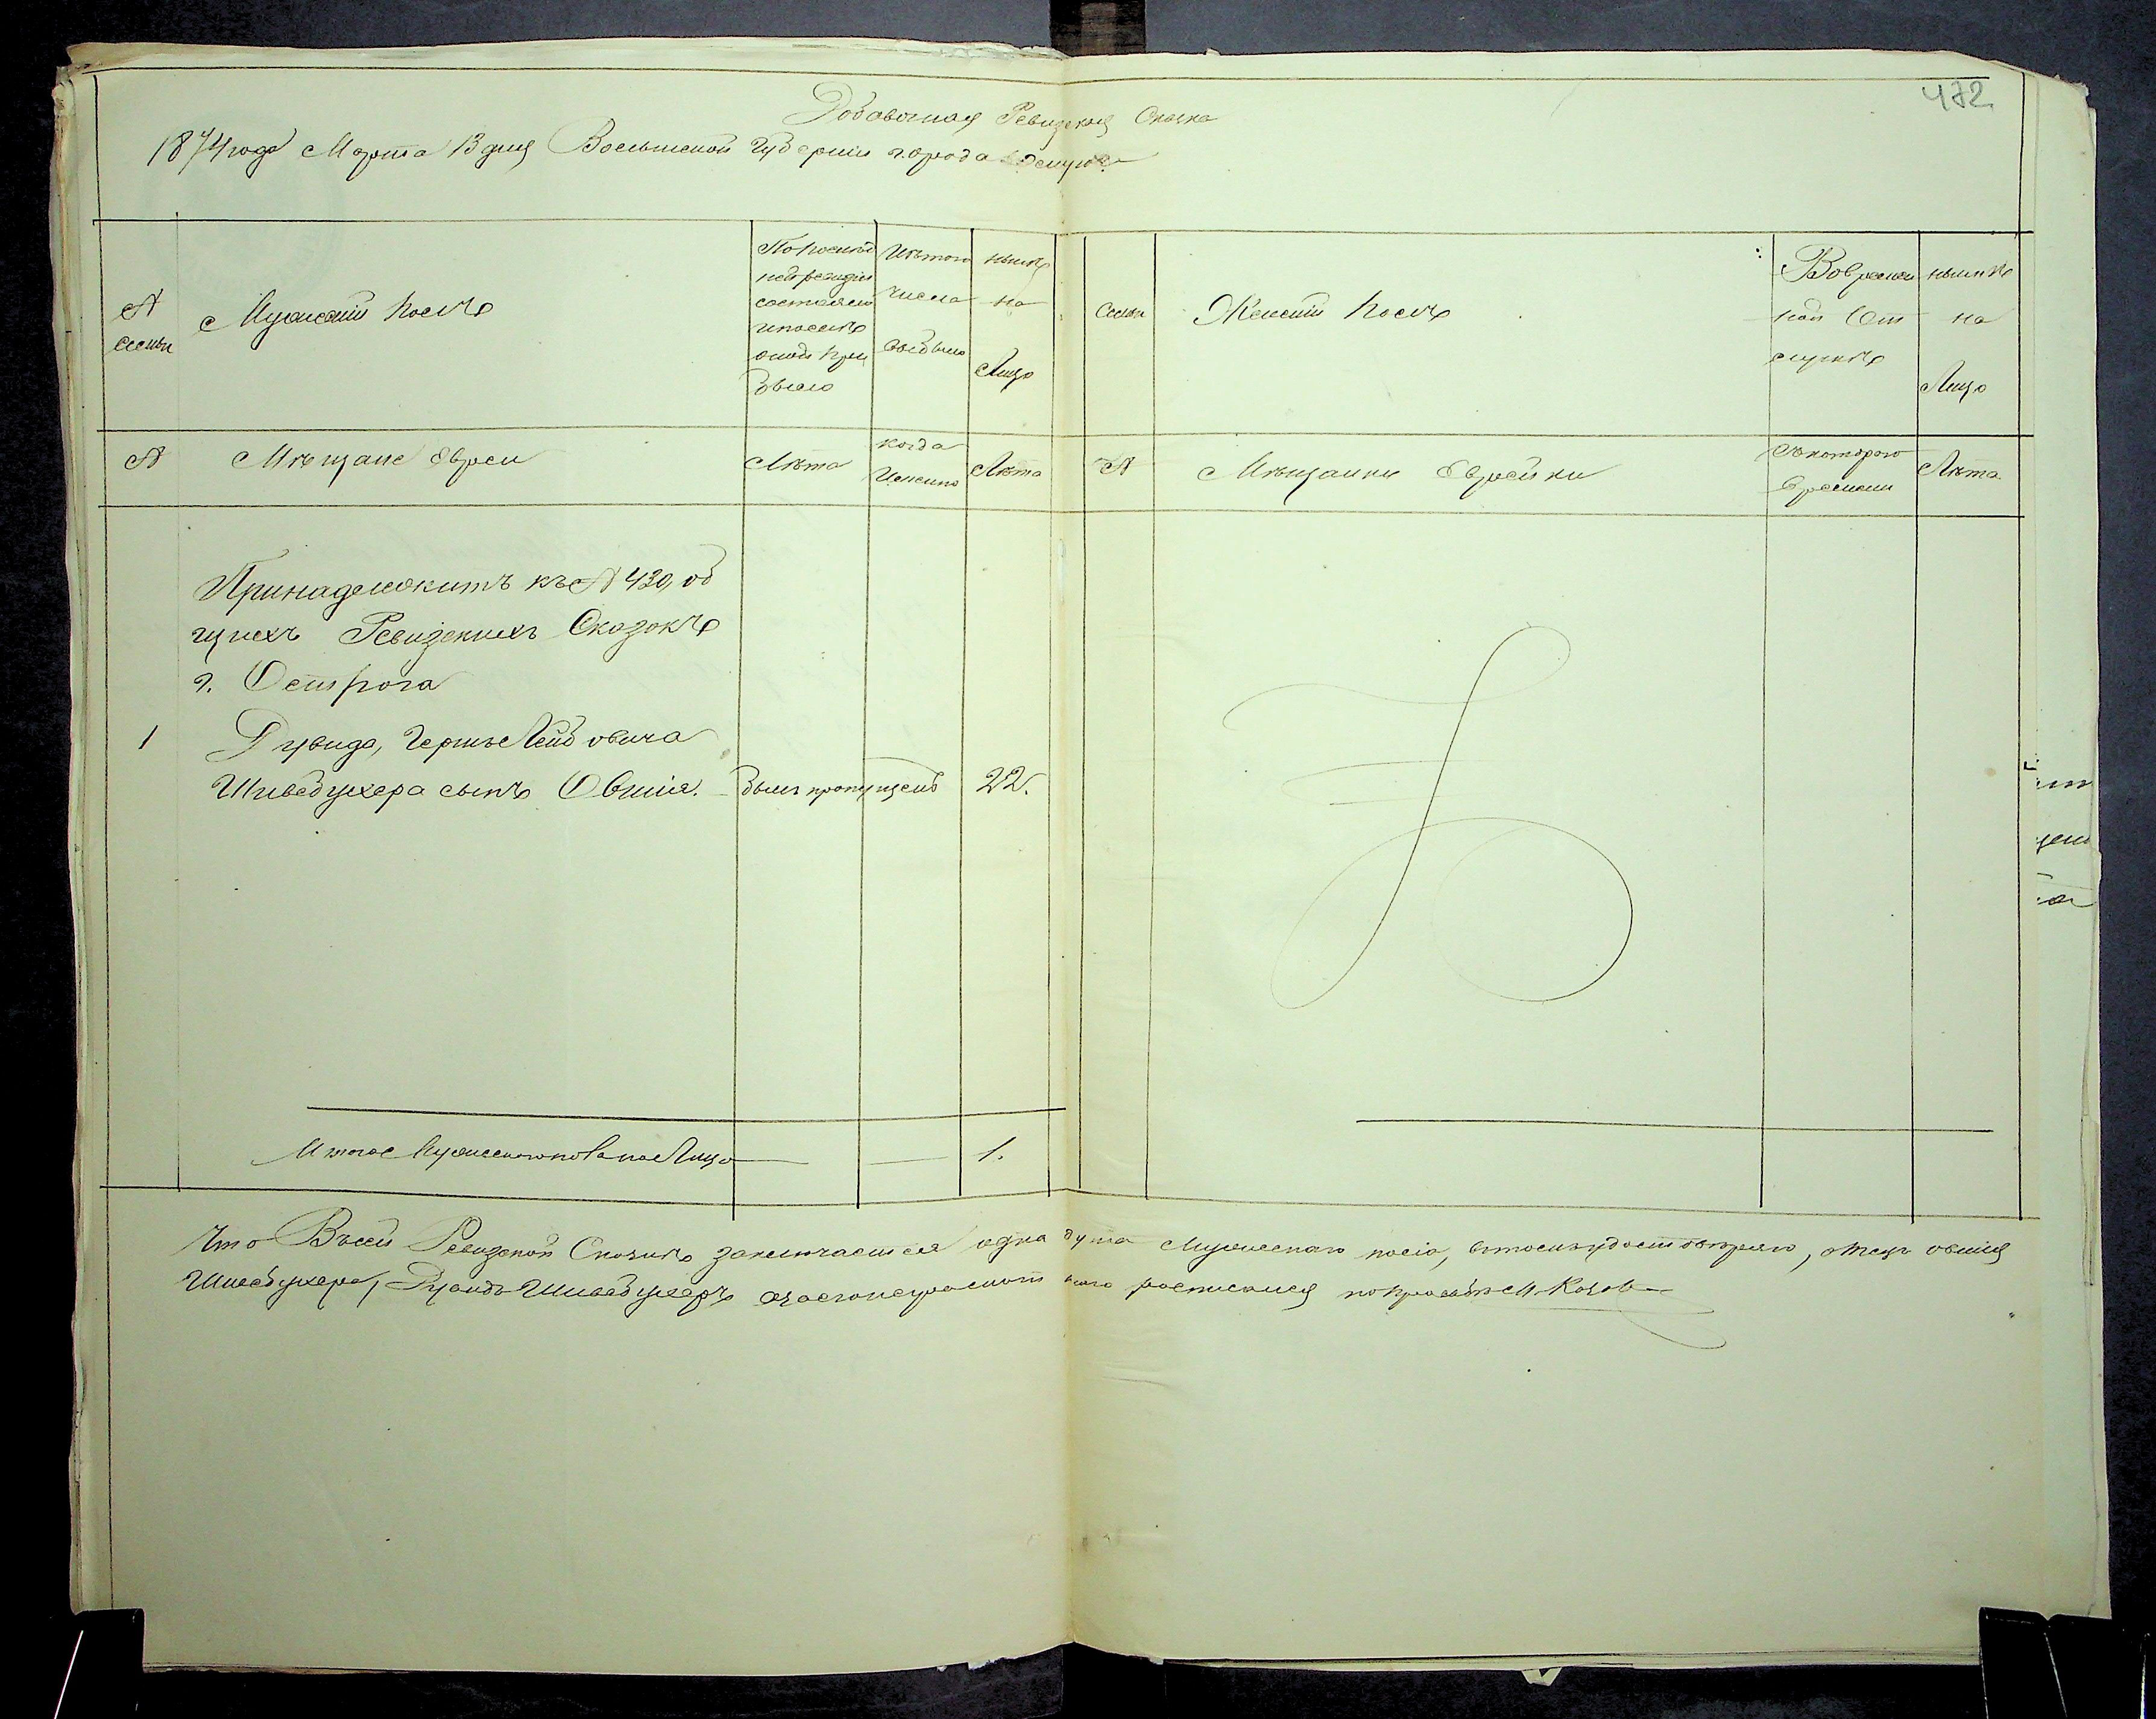 472
Добавочная Ревизская Сказка
1874 года Марта 13 дня Волынской Губернии города Острога
№
семьи
Мужеский полъ
По послѣд
ней ревизіи
состояло
и послѣ
оной при
было
Изъ того
числа
выбыло
нынѣ
на
Лицо
Семьи
Женскій полъ
Во времен
ной От
лучкѣ
нынѣ
на
Лицо
№
Мѣщане Евреи
Лѣта
когда
Именно
Лѣта
№
Мѣщанки Еврейки
Съ котораго
времени
Лѣта
Принадлежитъ къ № 430, об
щихъ Ревизскихъ Сказокъ
г. Острога
1
Дувида, Герше Лейбовича
Шнейдухера сынъ Овшія.
былъ пропущенъ
22.
Итого Мужескаго пола на Лицо
1.
Что Въ сей Ревизской Сказкѣ заключается одна душа Мужескаго пола, въ томъ и удостовѣряю, отецъ Овшія
Шнейдухера, Дувидъ Шнейдухеръ а за его неграмотностію росписался по прозьбѣ М. Козов